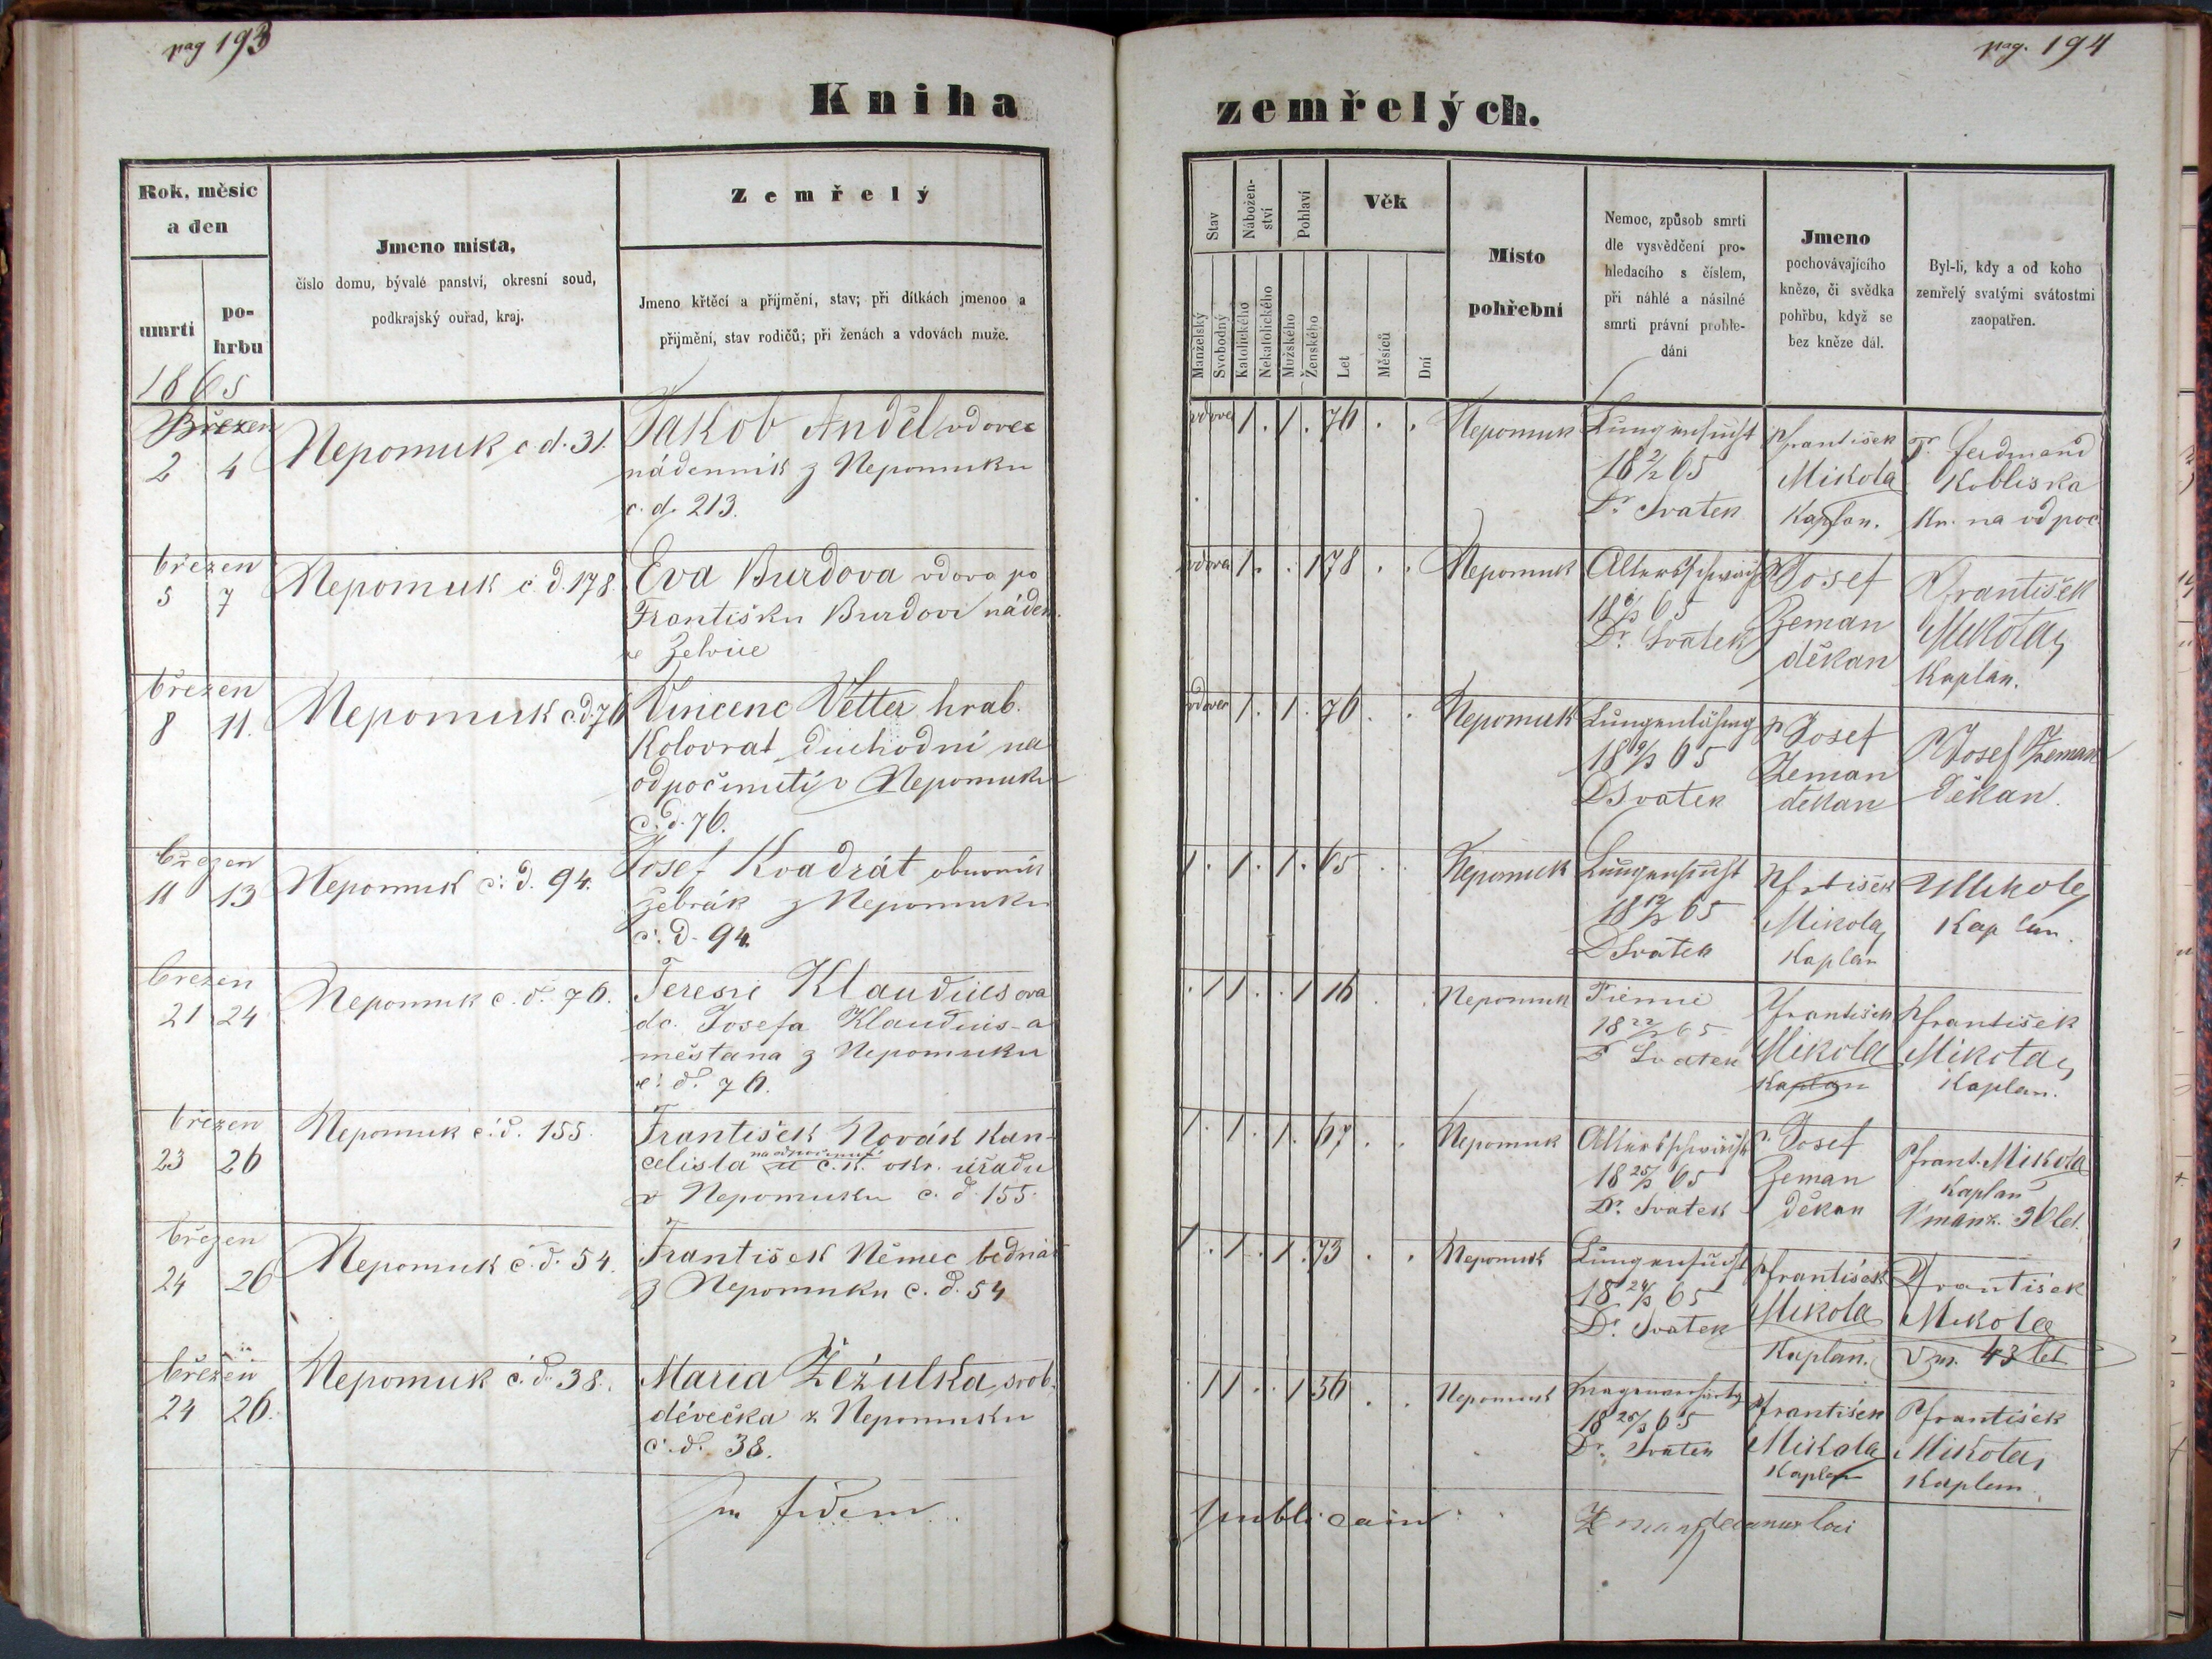 pag 193
Kniha
Rok, měsíc
a den
umrtí
po-
hrbu
1865
Jmeno místa,
číslo domu, bývalé panství, okresní soud,
podkrajský ouřad, kraj.
Zemřelý
Jmeno křtěcí a přijmění, stav; při dítkách jmenoo a
přijmění, stav rodičů; při ženách a vdovách muže.
Březen
2 4
Nepomuk č. d. 31.
Jakob Anděl vdovec
nádenník z Nepomuku
č. d. 213.
březen
5 7
Nepomuk č. d. 178.
Eva Burdova vdova po
Františku Burdovi náden.
březen
8 11.
Nepomuk č. d. 76
Vincenc Vetter hrab.
Kolovrat duchodní na
odpočinutí v Nepomuku
č. d. 76.
březen
11 13
Nepomuk č. d. 94.
Josef Kvadrát obuvník
žebrák z Nepomuku
č. d. 94.
březen
21 24
Nepomuk č. d. 76.
Teresie Klaudiusova
dc. Josefa Klaudius-a
měšťana z Nepomuku
č. d. 76.
březen
23 26
Nepomuk č. d. 155.
František Novák kan-
na odpočinutí
celista u c. k. okr. úřadu
v Nepomuku č. d. 155.
březen
24 26
Nepomuk č. d. 54.
František Němec bednář
z Nepomuku č. d. 54
březen
24 26.
Nepomuk č. d. 38.
Maria Žežulka, svob.
děvečka z Nepomuku
č. d. 38.
In fidem
pag. 194
zemřelých.
Stav
Nábožen-
ství
Pohlaví
Věk
Manželský
Svobodný
Katolického
Nekatolického
Mužského
Ženského
Let
Měsíců
Dní
Místo
pohřební
Nemoc, způsob smrti
dle vysvědčení pro-
hledacího s číslem,
při náhlé a násilné
smrti právní prohle-
dání
Jmeno
pochovávajícího
knězo, či svědka
pohřbu, když se
bez kněze dál.
Byl-li, kdy a od koho
zemřelý svatými svátostmi
zaopatřen.
vdovec 1 . 1 . 76 . .
Nepomuk
Lungensucht
18 2/2 65
Dr. Svatek
P František
Mikola
Kaplan.
P. Ferdinand
Kobliska
Kn. na odpoč
vdova 1 . . 1 78 . .
Nepomuk
Altersschwäche
18 6/3 65
Dr. Svatek
P Josef
Zeman
děkan
P František
Mikola
Kaplán.
vdovec 1 . 1 . 76 . .
Nepomuk
Lungenlähmg
18 9/3 65
D Svatek
P Josef
Zeman
děkan
P Josef Zeman
Děkan.
1 . 1 . 1 . 65 . .
Nepomuk
Lungensucht
18 12/3 65
D Svatek
P Frtišek
Mikola
Kaplan
Mikola
Kaplan.
. 1 1 . . 1 16 . .
Nepomuk
18 22/3 65
D Svatek
P František
Mikola
Kaplan
P František
Mikola
Kaplan.
1 . 1 . 1 . 67 . .
Nepomuk
Altersschwäche
18 25/3 65
Dr. Svatek
P. Josef
Zeman
Děkan
P Frant. Mikola
Kaplan
V manž. 30 let.
1 . 1 . 1 . 73 . .
Nepomuk
Lungensucht
18 24/3 65
Dr. Svatek
P František
Mikola
Kaplan.
P František
Mikola
V m. 43 let
. 1 1 . . 1 56 . .
Nepomuk
18 25/3 65
Dr. Svatek
P František
Mikola
Kaplan
P František
Mikola
Kaplan
publicam
Zeman decanus loci